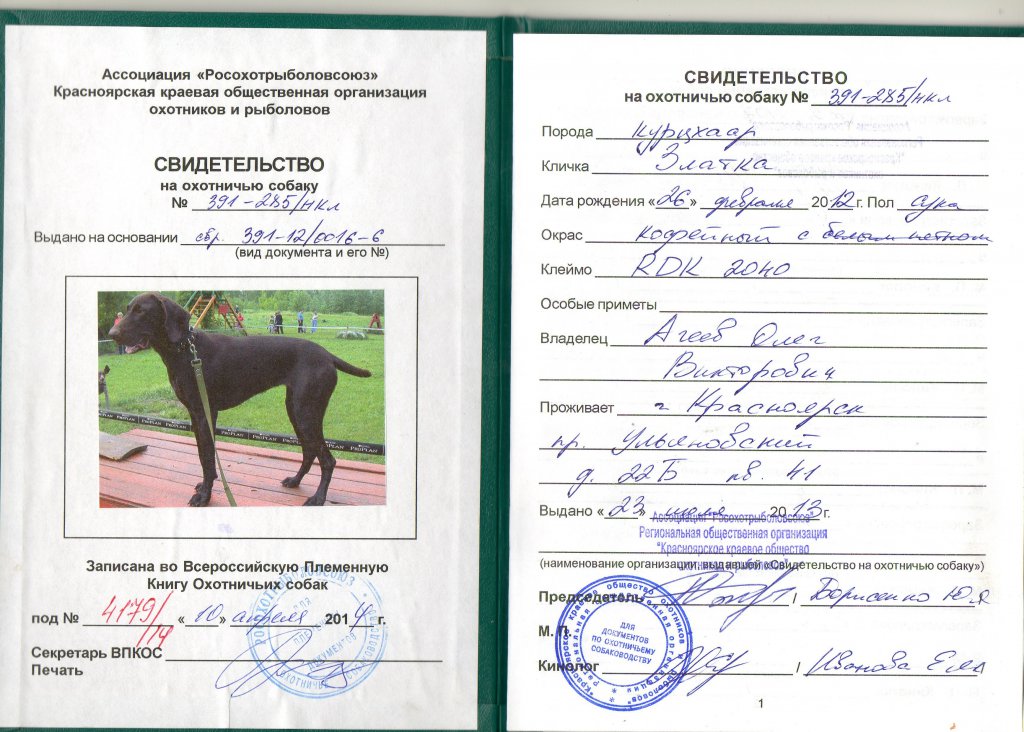 Ассоциация «Росохотрыболовсоюз»
Красноярская краевая общественная организация
охотников и рыболовов
СВИДЕТЕЛЬСТВО
на охотничью собаку
№ 391-285/нкл
Выдано на основании свр. 391-12/0016-6
(вид документа и его №)
PROPLAN PROPLAN PROPLAN PROPLAN
Записана во Всероссийскую Племенную
Книгу Охотничьих собак
под № 4179/14 «10» апреля 2014 г.
Секретарь ВПКОС
Печать
СВИДЕТЕЛЬСТВО
на охотничью собаку № 391-285/нкл
Порода курцхаар
Кличка Златка
Дата рождения «26» февраля 2012 г. Пол сука
Окрас кофейный с белым пятном
Клеймо RDK 2040
Особые приметы
Владелец Агеев Олег
Викторович
Проживает г Красноярск
пр. Ульяновский
д. 22Б кв. 41
Выдано «23» июля 2013 г.
Ассоциация "Росохотрыболовсоюз"
Региональная общественная организация
"Красноярское краевое общество
(наименование организации, выдавшей «Свидетельство на охотничью собаку»)
Председатель / Борисенко Ю.Я
М. П.
ДЛЯ
ДОКУМЕНТОВ
ПО ОХОТНИЧЬЕМУ
СОБАКОВОДСТВУ
Кинолог / Иванова
1